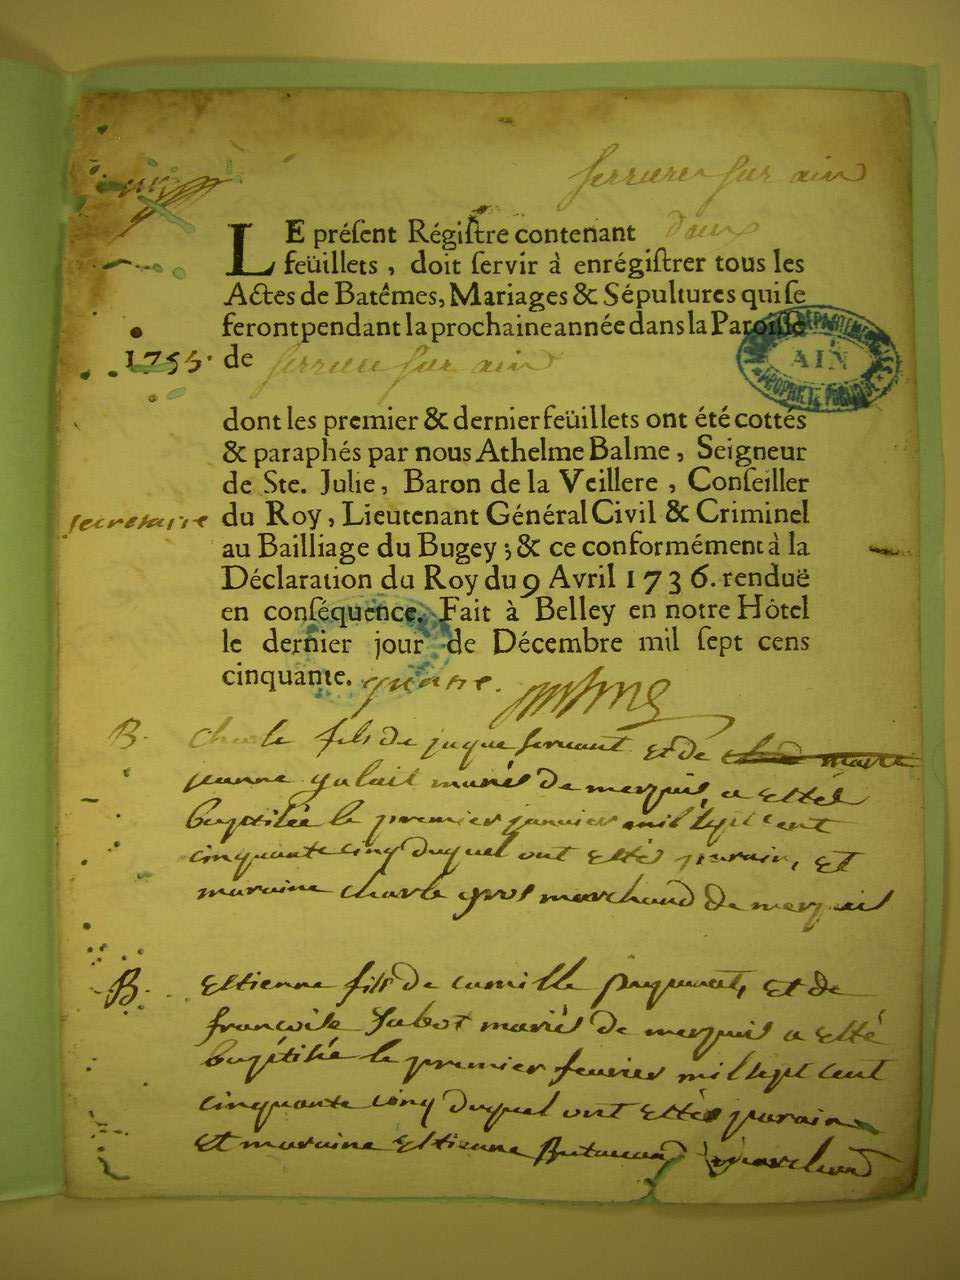 serriere sur ain
LE préſent Régiſtre contenant deux
feüillets, doit ſervir à enrégiſtrer tous les
Actes de Batêmes, Mariages & Sépultures qui ſe
feront pendant la prochaine année dans la Paroiſſe
1755. de serriere sur ain
ARCHIVES DÉPARTEMENTALES
AIN
PROPRIÉTÉ PUBLIQUE
dont les premier & dernier feüillets ont été cottés
& paraphés par nous Athelme Balme, Seigneur
de Ste. Julie, Baron de la Veillere, Conſeiller
secretaire du Roy, Lieutenant Général Civil & Criminel
au Bailliage du Bugey; & ce conformément à la
Déclaration du Roy du 9 Avril 1736. renduë
en conſéquence. Fait à Belley en notre Hôtel
le dernier jour de Décembre mil ſept cens
cinquante. quatre.
B. Charle fils de jaque servant et de marie
jeanne galait mariés de merpuis, a estés
baptisée le premier janvier mil sept cent
cinquante cinq duquel ont estés parain, et
maraine charle gros marchand de merpuis
B. Estienne fils de camille et de
francoise Jabot mariés de merpuis a esté
baptisée le premier fevrier mil sept cent
cinquante cinq duquel ont estés parain
et maraine estienne marchand